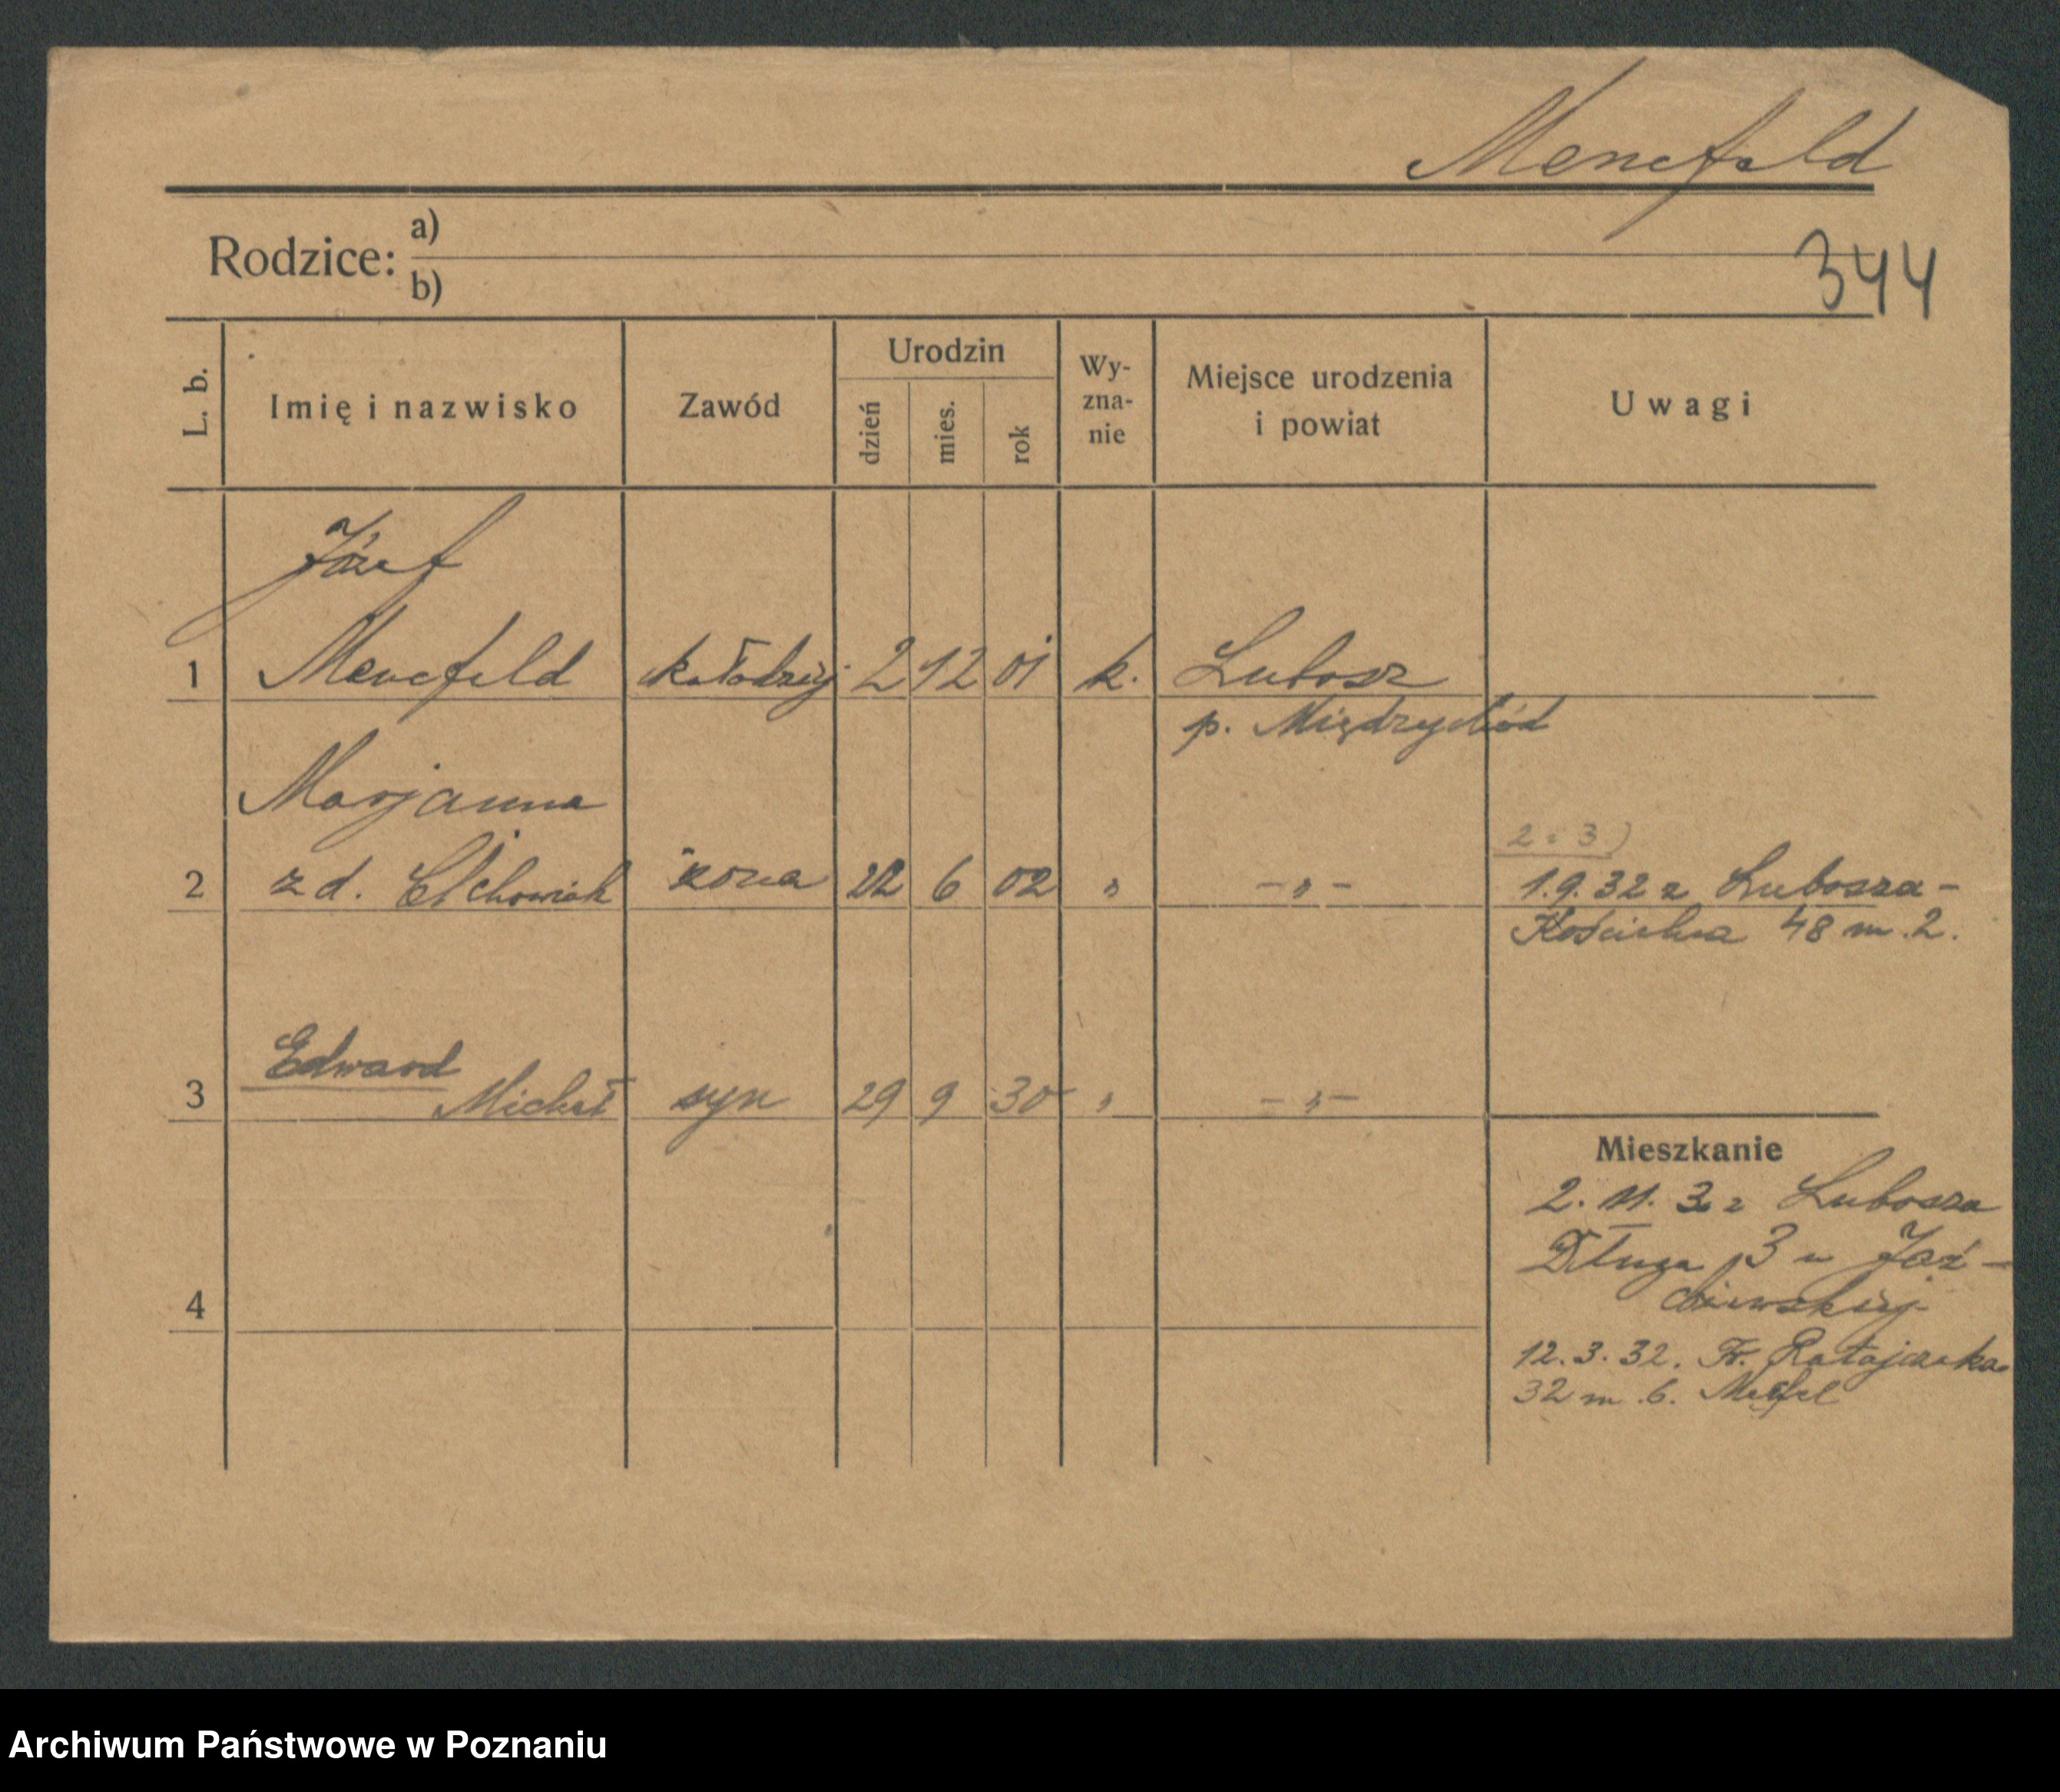 Menefeld
Rodzice: a)
b)
344
L. b.
Imię i nazwisko
Zawód
Urodzin
dzień
mies.
rok
Wy-
zna-
nie
Miejsce urodzenia
i powiat
Uwagi
Józef
1 Menefeld kołodziej 2 12 01 k. Lubosz
p. Międzychód
Marjanna
2 z d. żona 22 6 02 " - " -
2 i 3)
1.9.32 z Lubosza -
Kościelna 48 m. 2.
Edward
3 Michał syn 29 9 30 " - " -
4
Mieszkanie
2. 11. z Lubosza
Długa 3 u
12.3.32. Fr. Ratajczaka
32 m. 6.
Archiwum Państwowe w Poznaniu